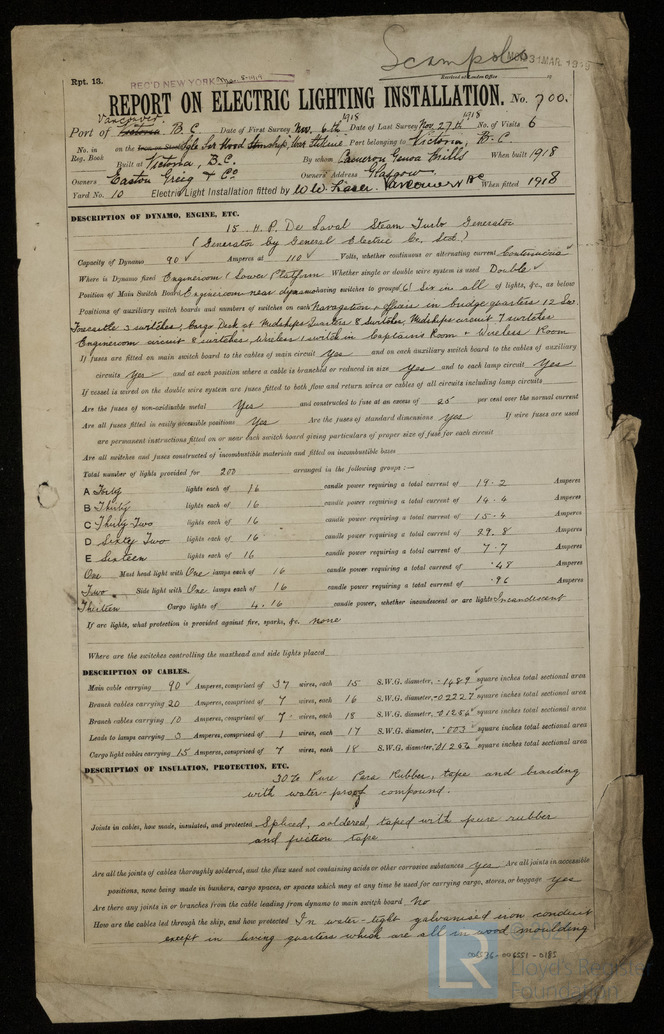 Scampolo
MON 31 MAR 19
Rpt. 13.
REC'D NEW YORK Mar. 8-1919
REPORT ON ELECTRIC LIGHTING INSTALLATION. No. 700.
Vancouver
Port of Victoria B.C. Date of First Survey Nov. 6th 1918 Date of Last Survey Nov. 27th 1918 No. of Visits 6
No. in Reg. Book on the Sgle Scr Wood Steamship, War Stikine Port belonging to Victoria, B.C.
Built at Victoria, B.C. By whom Cameron Genoa Mills When built 1918
Owners Easton Greig & Co Owners' Address Glasgow
Yard No. 10 Electric Light Installation fitted by W.W. Fraser. Vancouver BC When fitted 1918
DESCRIPTION OF DYNAMO, ENGINE, ETC.
15. H.P. De Laval Steam Turbo Generator
(Generator by General Electric Co., Ltd.)
Capacity of Dynamo 90 Amperes at 110 Volts, whether continuous or alternating current Continuous
Where is Dynamo fixed Engineroom (Lower Platform Whether single or double wire system is used Double
Position of Main Switch Board Engineroom near dynamo having switches to groups (6) Six in all of lights, &c., as below
Positions of auxiliary switch boards and numbers of switches on each Navagation & officers in bridge quarters 12 Sw.
Foscastle 2 switches, Cargo Desk at Midships Quarters 8 switches, Midships circuit 7 switches
Engineroom circuit 8 switches, Wireless 1 switch in Captains Room & Wireless Room
If fuses are fitted on main switch board to the cables of main circuit yes and on each auxiliary switch board to the cables of auxiliary
circuits yes and at each position where a cable is branched or reduced in size yes and to each lamp circuit Yes
If vessel is wired on the double wire system are fuses fitted to both flow and return wires or cables of all circuits including lamp circuits
Are the fuses of non-oxidizable metal Yes and constructed to fuse at an excess of 25 per cent over the normal current
Are all fuses fitted in easily accessible positions Yes Are the fuses of standard dimensions yes If wire fuses are used
are permanent instructions fitted on or near each switch board giving particulars of proper size of fuse for each circuit
Are all switches and fuses constructed of incombustible materials and fitted on incombustible bases
Total number of lights provided for 200 arranged in the following groups :—
A Forty lights each of 16 candle power requiring a total current of 19.2 Amperes
B Thirty lights each of 16 candle power requiring a total current of 14.4 Amperes
C Thirty Two lights each of 16 candle power requiring a total current of 15.4 Amperes
D Sixty Two lights each of 16 candle power requiring a total current of 29.8 Amperes
E Sixteen lights each of 16 candle power requiring a total current of 7.7 Amperes
One Mast head light with One lamps each of 16 candle power requiring a total current of .48 Amperes
Two Side light with One lamps each of 16 candle power requiring a total current of .96 Amperes
Thirteen Cargo lights of 4.16 candle power, whether incandescent or arc lights Incandescent
If arc lights, what protection is provided against fire, sparks, &c. none
Where are the switches controlling the masthead and side lights placed
DESCRIPTION OF CABLES.
Main cable carrying 90 Amperes, comprised of 37 wires, each 15 S.W.G. diameter, .1489 square inches total sectional area
Branch cables carrying 20 Amperes, comprised of 7 wires, each 16 S.W.G. diameter, .02227 square inches total sectional area
Branch cables carrying 10 Amperes, comprised of 7 wires, each 18 S.W.G. diameter, .01256 square inches total sectional area
Leads to lamps carrying 3 Amperes, comprised of 1 wires, each 17 S.W.G. diameter, .003 square inches total sectional area
Cargo light cables carrying 15 Amperes, comprised of 7 wires, each 18 S.W.G. diameter, .01256 square inches total sectional area
DESCRIPTION OF INSULATION, PROTECTION, ETC.
30% Pure Para Rubber, tape and braiding
with water-proof compound.
Joints in cables, how made, insulated, and protected Spliced, soldered, taped with pure rubber
and friction tape
Are all the joints of cables thoroughly soldered, and the flux used not containing acids or other corrosive substances yes Are all joints in accessible
positions, none being made in bunkers, cargo spaces, or spaces which may at any time be used for carrying cargo, stores, or baggage yes
Are there any joints in or branches from the cable leading from dynamo to main switch board No
How are the cables led through the ship, and how protected In water-tight galvanised iron conduit
except in living quarters which are all in wood moulding
008536-008551-0185
LR
Lloyd's Register
Foundation